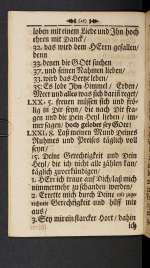 (o)
loben mit einem Liede und Ihn hoch
ehren mit Danck/
32. das wird dem HErrn gefallen/
denn
33. denen die GOtt suchen
37. und seinen Nahmen lieben/
33. wird das Hertze leben/
35. Es lobe Ihn Himmel/ Erden/
Meer und alles was sich darin reget/
LXX. 5. freuen müssen sich und frö-
lig in Dir seyn/ die nach Dir fra-
gen und die Dein Heyl lieben/ im-
mer sagen/ hoch gelobet sey GOtt!
LXXI. 8. Laß meinen Mund Deines
Ruhmes und Preises täglich voll
seyn/
15. Deine Gerechtigkeit und Dein
Heyl/ die ich nicht alle zählen kan/
täglich zuverkündigen/
1. HErr ich traue auf Dich/ laß mich
nimmermehr zu schanden werden/
2. Errette mich durch Deine
Gerechtigkeit und hilff mir
aus/
3. Sey mir ein starcker Hort/ dahin
ich